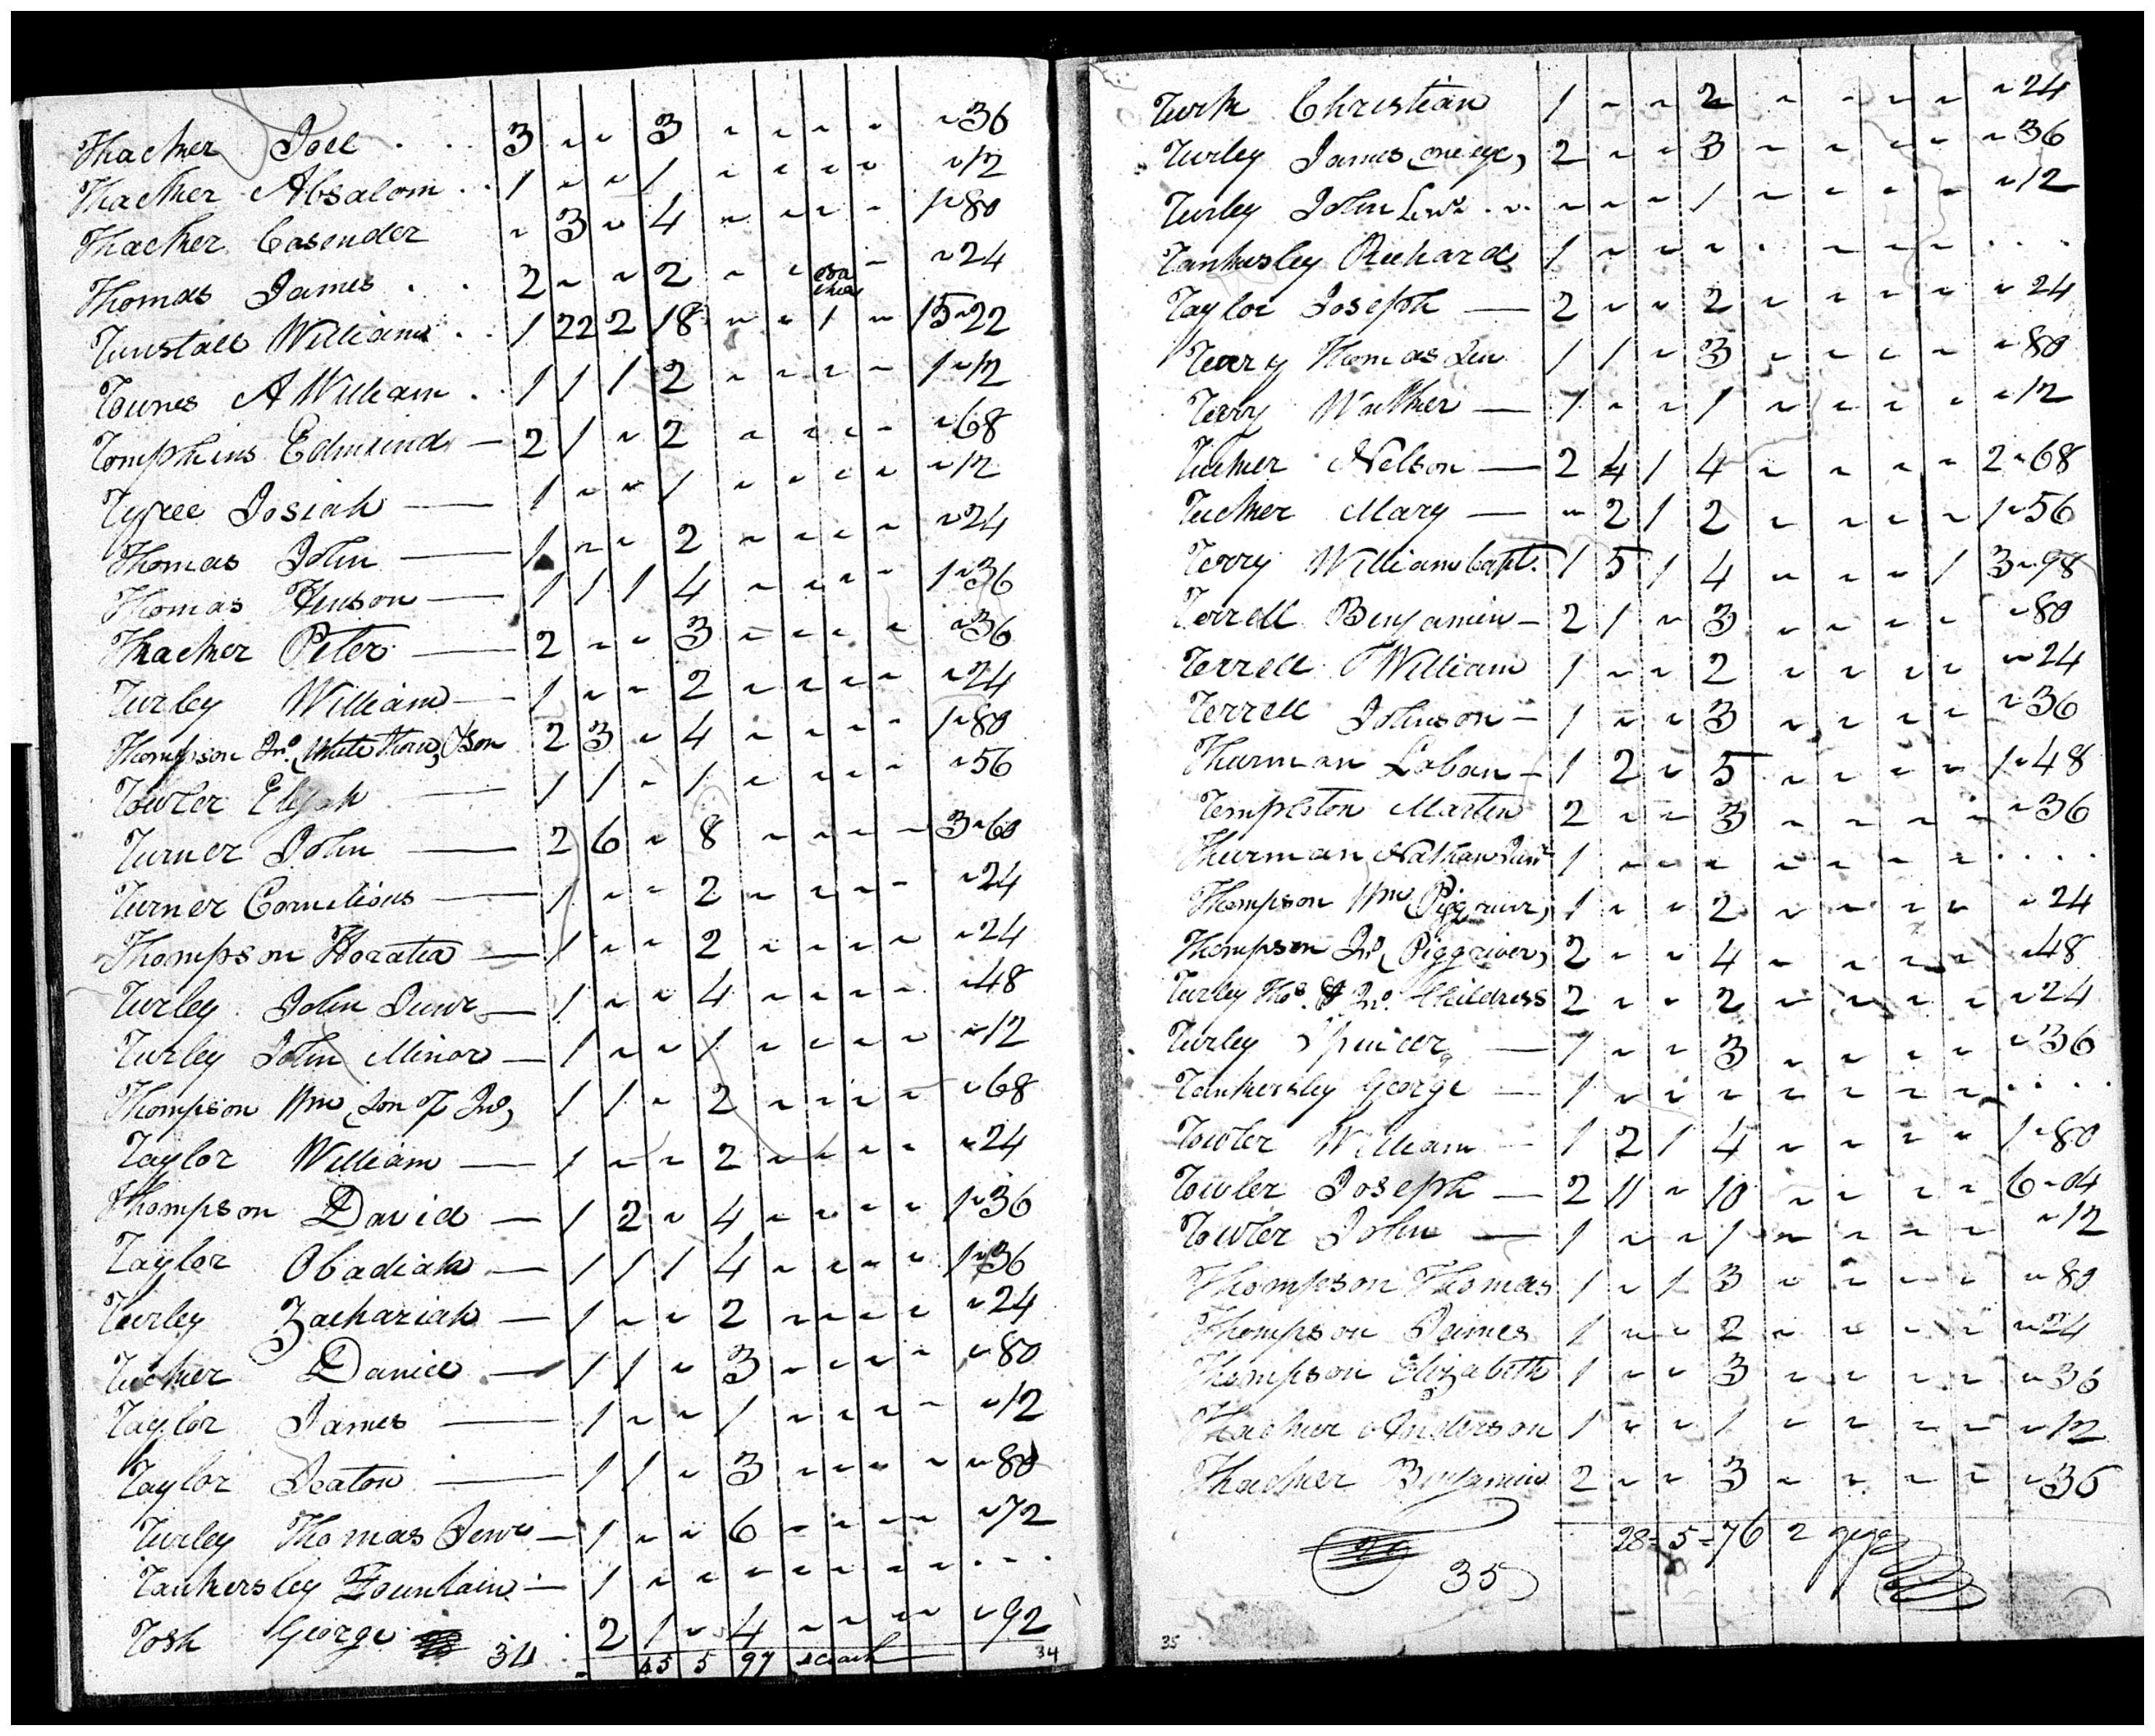 Thacker Joel . . 3 " " 3 " " " " " 36
Thacker Absalom . . 1 " " 1 " " " " " 12
Thacker Casender " 3 " 4 " " " " 1 " 80
Thomas James . . 2 " " 2 " " " " " 24
Tunstall William . . 1 22 2 18 " " 1 " 15 " 22
Townes A William . 1 1 1 2 " " " " 1 " 12
Tompkins Edmund — 2 1 " 2 " " " " " 68
Tyree Josiah — 1 " " 1 " " " " " 12
Thomas John — 1 " " 2 " " " " " 24
Thomas Henson — 1 1 1 4 " " " " 1 " 36
Thacker Peter — 2 " " 3 " " " " " 36
Turley William — 1 " " 2 " " " " " 24
Thompson Jno. (White Thorn) & son 2 3 " 4 " " " " 1 " 80
Towler Elijah — 1 1 " 1 " " " " " 56
Turner John — 2 6 " 8 " " " " 3 " 60
Turner Cornelious — 1 " " 2 " " " " " 24
Thompson Horatio — 1 " " 2 " " " " " 24
Turley John Junr — 1 " " 4 " " " " " 48
Turley John Minor — 1 " " 1 " " " " " 12
Thompson Wm (son of Jno) 1 1 " 2 " " " " " 68
Taylor William — 1 " " 2 " " " " " 24
Thompson David — 1 2 " 4 " " " " 1 " 36
Taylor Obadiah — 1 1 1 4 " " " " 1 " 36
Turley Zachariah — 1 " " 2 " " " " " 24
Tucker Daniel — 1 1 " 3 " " " " " 80
Taylor James — 1 " " 1 " " " " " 12
Taylor Seaton — 1 1 " 3 " " " " " 80
Turley Thomas Senr — 1 " " 6 " " " " " 72
Tankersley Fountain — 1 " " " " " " " . . .
Tosh George 2 1 " 4 " " " " " 92
34 45 5 97
34
Turk Christian 1 " " 2 " " " " " 24
Turley James (one eye) 2 " " 3 " " " " " 36
Turley John " " " 1 " " " " " 12
Tankersley Richard 1 " " " " " " " . . .
Taylor Joseph — 2 " " 2 " " " " " 24
Terry Thomas 1 1 " 3 " " " " " 80
Terry Walker — 1 " " 1 " " " " " 12
Tucker Nelson — 2 4 1 4 " " " " 2 " 68
Tucker Mary — " 2 1 2 " " " " 1 " 56
Terry William Capt. 1 5 1 4 " " " 1 3 " 98
Terrell Benjamin — 2 1 " 3 " " " " " 80
Terrell William 1 " " 2 " " " " " 24
Terrell Johnson — 1 " " 3 " " " " " 36
Thurman Laban — 1 2 " 5 " " " " 1 " 48
Templeton Martin 2 " " 3 " " " " " 36
Thurman Nathan Junr 1 " " " " " " " . . . .
Thompson Wm (Pigg river) 1 " " 2 " " " " " 24
Thompson Jno (Pigg river) 2 " " 4 " " " " " 48
Turley Thos. & Jno. Childress 2 " " 2 " " " " " 24
Turley Spencer — 1 " " 3 " " " " " 36
Tankersley George — 1 " " " " " " " . . . .
Towler William — 1 2 1 4 " " " " 1 " 80
Towler Joseph — 2 11 " 10 " " " " 6 " 04
Towler John — 1 " " 1 " " " " " 12
Thompson Thomas 1 " 1 3 " " " " " 80
Thompson James 1 " " 2 " " " " " 24
Thompson Elizabeth 1 " " 3 " " " " " 36
Thacker Anderson 1 " " 1 " " " " " 12
Thacker Benjamin 2 " " 3 " " " " " 36
28 = 5 = 76 2 gigs
35
35